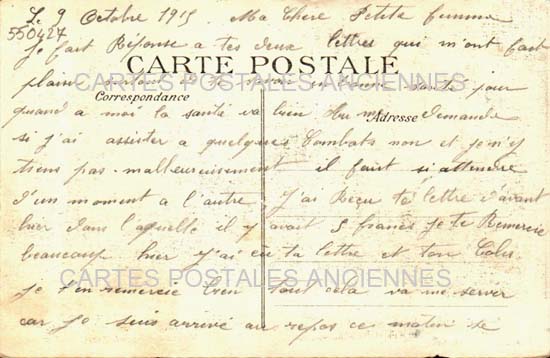 Le 9 Octobre 1915 Ma Chere Petite femme
550427
Je fait Réponse a tes deux lettres qui m'ont fait
plaisir surtout de te savoir en bonne santé pour
CARTE POSTALE
CARTES POSTALES ANCIENNES
Correspondance
quand a moi la santé va bien tu me demande
Adresse
si j'ai assister a quelques Combats non et je n'y
tiens pas. malheureusement il faut si attendre
d'un moment a l'autre J'ai Reçu ta lettre d'avant
hier dans laquelle il y avait 5 francs je te Remercie
beaucoup hier j'ai eu ta lettre et ton Colis
CARTES POSTALES ANCIENNES
je t'en remercie bien tout cela va me servir
car je suis arrivé au repos ce matin je